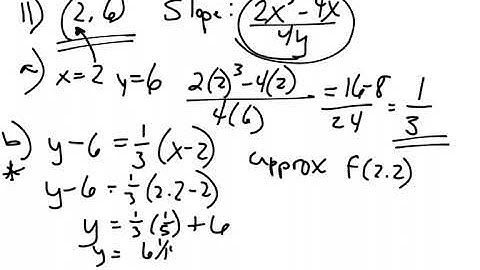 11) (2,6) Slope: (2x³-4x)/4y
a) x=2 y=6 (2(2)³-4(2))/4(6) = (16-8)/24 = 1/3
b) y-6 = 1/3 (x-2)
* approx f(2.2)
y-6 = 1/3 (2.2-2)
y = 1/3 (1/5) + 6
y =